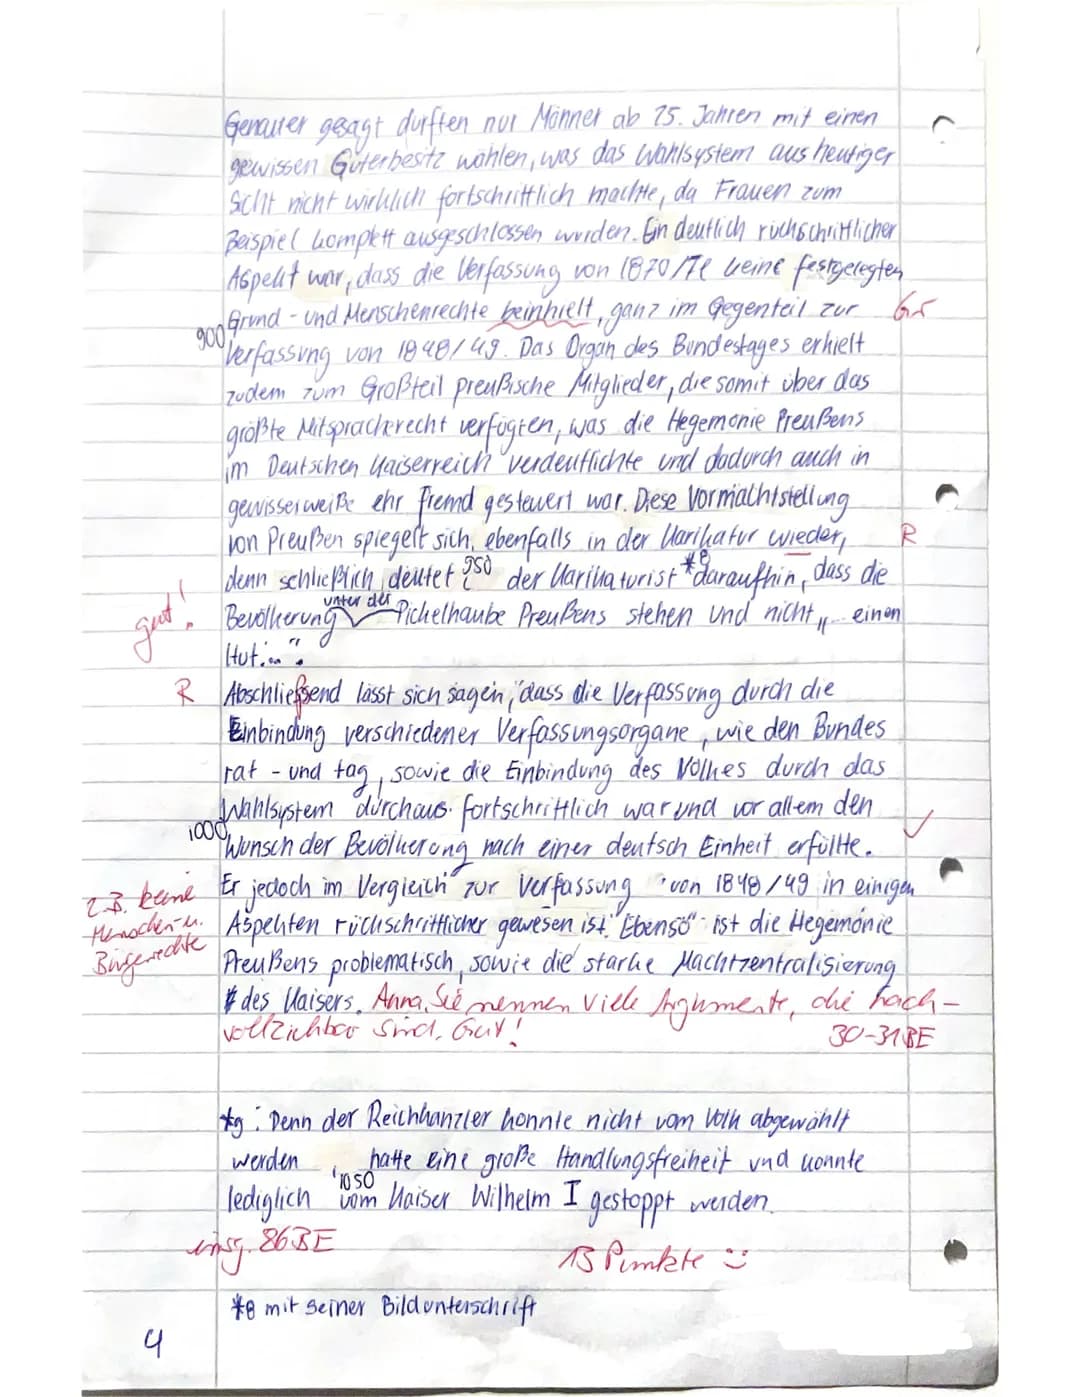 Genauer gesagt durften nur Männer ab 25. Jahren mit einen
gewissen Güterbesitz wählen, was das Wahlsystem aus heutiger
Sicht nicht wirklich fortschrittlich machte, da Frauen zum
Beispiel komplett ausgeschlossen wurden. Ein deutlich rückschrittlicher
Aspekt war, dass die Verfassung von 1870/71 keine festgelegten
900 Grund - und Menschenrechte beinhielt, ganz im Gegenteil zur Gr
Verfassung von 1848/49. Das Organ des Bundestages erhielt
zudem zum Großteil preußische Mitglieder, die somit über das
größte Mitspracherecht verfügten, was die Hegemonie Preußens
im Deutschen Kaiserreich verdeutlichte und dadurch auch in
gewisserweiße ehr fremd gesteuert war. Diese Vormachtstellung
von Preußen spiegelt sich, ebenfalls in der Karikatur wieder, R
denn schließlich deutet 950 der Karikaturist *8 daraufhin, dass die
gut! Bevölkerung unter der Pickelhaube Preußens stehen und nicht „... einen
Hut...“.
R Abschließend lässt sich sagen, dass die Verfassung durch die
Einbindung verschiedener Verfassungsorgane, wie den Bundes
rat - und tag, sowie die Einbindung des Volkes durch das
Wahlsystem durchaus fortschrittlich war und vor allem den
1000 Wunsch der Bevölkerung nach einer deutsch Einheit erfüllte.
Er jedoch im Vergleich zur Verfassung von 1848/49 in einigen
z.B. keine
Menschen- u.
Bürgerrechte
Aspekten rückschrittlicher gewesen ist. Ebenso ist die Hegemonie
Preußens problematisch, sowie die starke Machtzentralisierung
des Kaisers. Anna, Sie nennen viele Argumente, die nach-
vollziehbar sind. Gut! 30-31BE
*9: Denn der Reichkanzler konnte nicht vom Volk abgewählt
werden, hatte eine große Handlungsfreiheit und konnte
lediglich 1050 vom Kaiser Wilhelm I gestoppt werden.
insg. 86BE 13 Punkte :)
*8 mit seiner Bildunterschrift
4